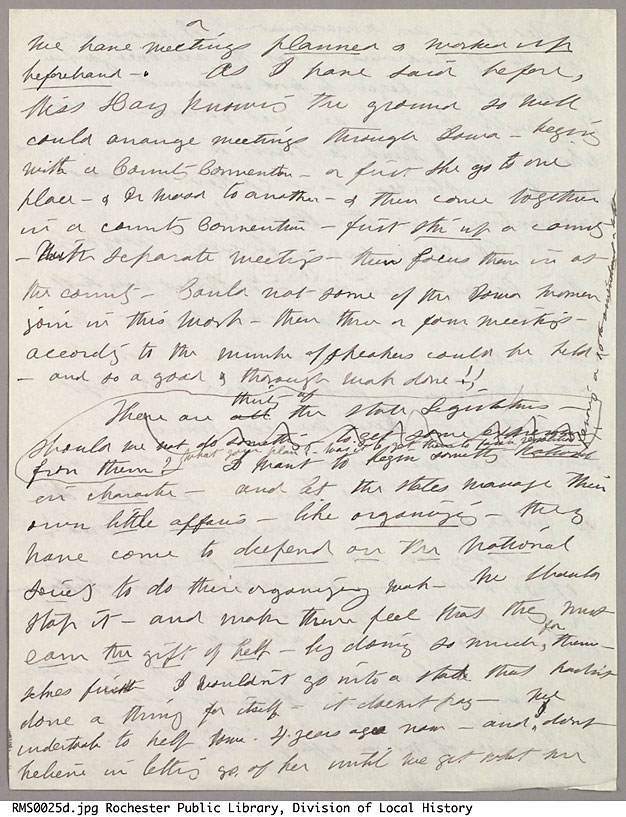 we have meetings planned & worked up
beforehand - As I have said before,
Miss Hay knowing the ground so well
could arrange meetings through Iowa - begin
with a County Convention - or first she go to one
place - & Dr Wood to another - & then come together
in a county Convention - first stir up a county
- With separate meetings - then focus them in at
the county - Could not some of the Iowa women
join in this work - then three or four meetings -
according to the number of speakers could be held
- and so a good & thorough work done!!
There are thirty of all the state Legislatures -
should we not do something to get some
from them? what your plan? - was it to get them to
I want to begin something National
in character - and let the states manage their
own little affairs - like organizing - they
have come to depend on the National
Society to do their organizing work - We should
stop it - and make them feel that they must
earn the gift of help - by doing so much, for them-
selves first I wouldn't go into a state that hadn't
done a thing for itself - it doesn't pay - We
undertook to help Iowa 4 years ago now - and, don't
believe in letting go of her until we get what we
RMS0025d.jpg Rochester Public Library, Division of Local History